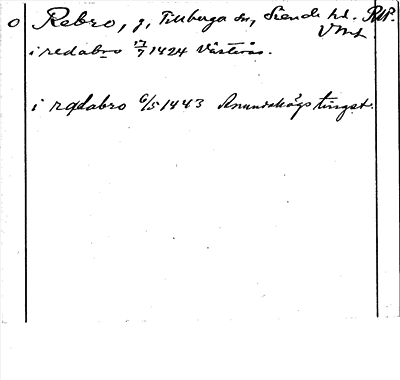 o Rebro, g, Tillberga sn, Siende hd. RAP.
Vml
i redabro 17/7 1424 Västerås.
i redabro 6/5 1443 Anundshögs tingst.